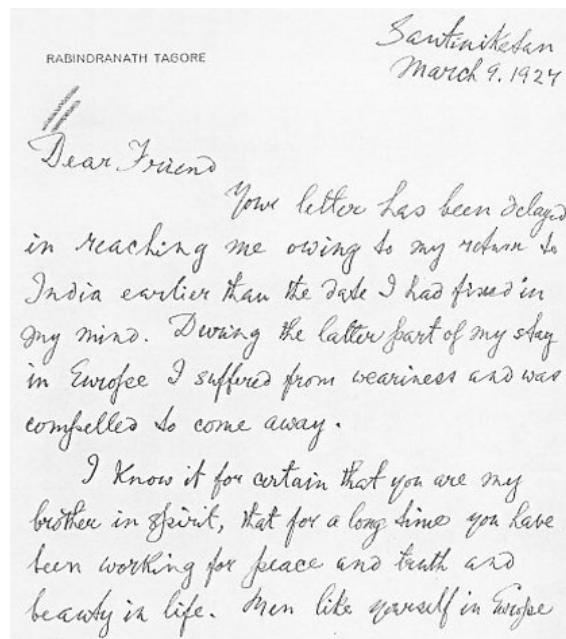 Santiniketan
RABINDRANATH TAGORE
March 9. 1927
Dear Friend
Your letter has been delayed
in reaching me owing to my return to
India earlier than the date I had fixed in
my mind. During the latter part of my stay
in Europe I suffered from weariness and was
compelled to come away.
I know it for certain that you are my
brother in spirit, that for a long time you have
been working for peace and truth and
beauty in life. Men like yourself in Europe